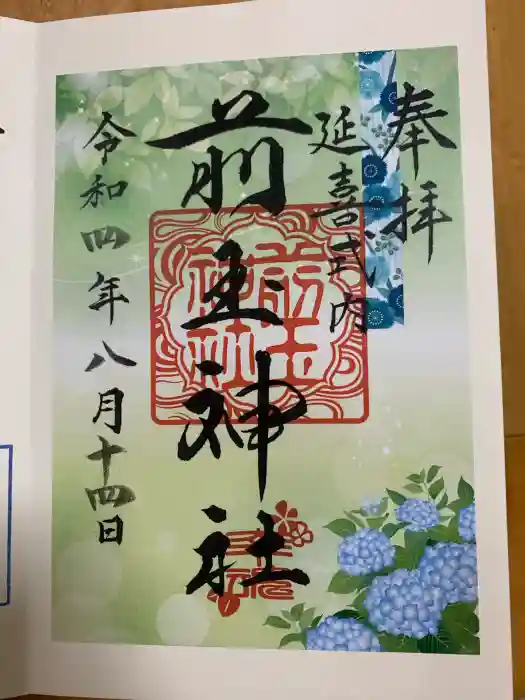 奉拝
延喜式内
前玉神社
前玉神社
令和四年八月十四日